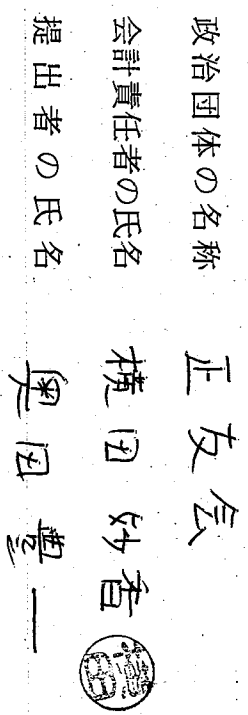 政治団体の名称 正友会
会計責任者の氏名 横田妙香
提出者の氏名 奥田豊一